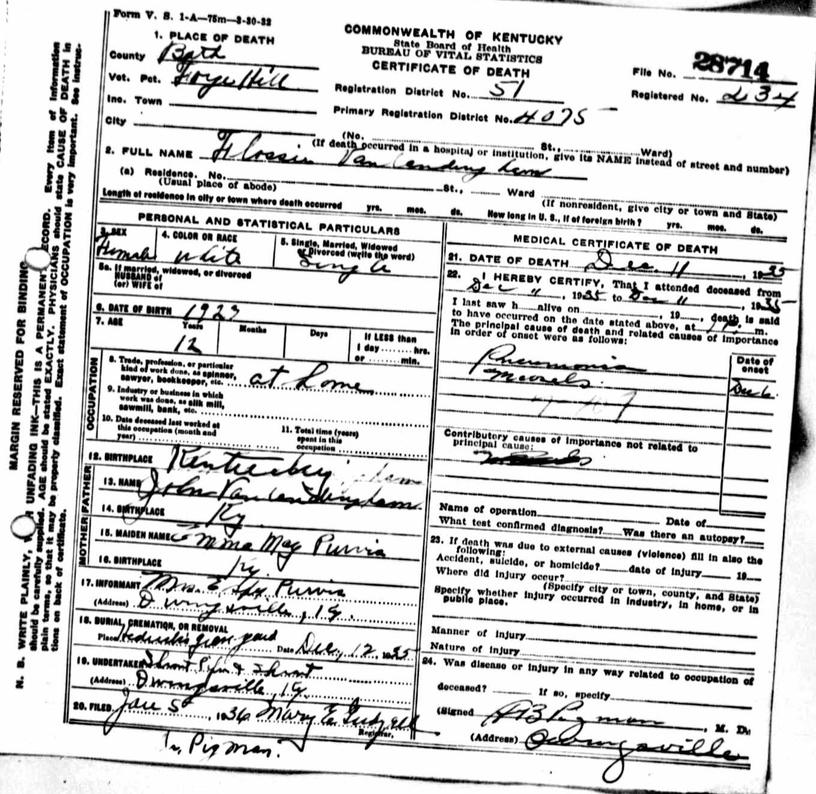 Form V. S. 1-A—75m—3-30-32
COMMONWEALTH OF KENTUCKY
State Board of Health
BUREAU OF VITAL STATISTICS
CERTIFICATE OF DEATH
File No. 28714
Registered No. 234
Registration District No. 51
Primary Registration District No. 4075
1. PLACE OF DEATH
County Bath
Vot. Pct. Forge Hill
Inc. Town
City
(No. St., Ward)
(If death occurred in a hospital or institution, give its NAME instead of street and number)
2. FULL NAME Flossie Vanlandingham
(a) Residence. No. St., Ward
(Usual place of abode)
(If nonresident, give city or town and State)
Length of residence in city or town where death occurred yrs. mos. ds. How long in U. S., if of foreign birth? yrs. mos. ds.
PERSONAL AND STATISTICAL PARTICULARS
3. SEX
Female
4. COLOR OR RACE
White
5. Single, Married, Widowed
or Divorced (write the word)
Single
5a. If married, widowed, or divorced
HUSBAND of
(or) WIFE of
6. DATE OF BIRTH 1923
7. AGE Years Months Days
12
If LESS than
1 day ........ hrs.
or ........ min.
OCCUPATION
8. Trade, profession, or particular
kind of work done, as spinner,
sawyer, bookkeeper, etc. at home
9. Industry or business in which
work was done, as silk mill,
sawmill, bank, etc.
10. Date deceased last worked at
this occupation (month and
year)
11. Total time (years)
spent in this
occupation
12. BIRTHPLACE Kentucky
FATHER
13. NAME John Vanlandingham
14. BIRTHPLACE Ky
MOTHER
15. MAIDEN NAME Emma May Purvis
16. BIRTHPLACE Ky
17. INFORMANT Mrs. Purvis
(Address) Owingsville, Ky.
18. BURIAL, CREMATION, OR REMOVAL
Place grave yard Date Dec, 12 1935
19. UNDERTAKER
(Address) Owingsville, Ky.
20. FILED Jan 5, 1936 Mary E.
Registrar.
Pigman.
MEDICAL CERTIFICATE OF DEATH
21. DATE OF DEATH Dec. 11, 1935
22. I HEREBY CERTIFY, That I attended deceased from
Dec ", 1935 to Dec ", 1935
I last saw h alive on , 19 , death is said
to have occurred on the date stated above, at m.
The principal cause of death and related causes of importance
in order of onset were as follows:
Date of
onset
Pneumonia
Measels
Dec 6
Contributory causes of importance not related to
principal cause:
Name of operation Date of
What test confirmed diagnosis? Was there an autopsy?
23. If death was due to external causes (violence) fill in also the
following:
Accident, suicide, or homicide? date of injury 19
Where did injury occur?
(Specify city or town, county, and State)
Specify whether injury occurred in industry, in home, or in
public place.
Manner of injury
Nature of injury
24. Was disease or injury in any way related to occupation of
deceased? If so, specify
(Signed H B Pigman, M. D.
(Address) Owingsville
MARGIN RESERVED FOR BINDING
N. B. WRITE PLAINLY, UNFADING INK—THIS IS A PERMANENT RECORD. Every item of information
should be carefully supplied. AGE should be stated EXACTLY. PHYSICIANS should state CAUSE OF DEATH in
plain terms, so that it may be properly classified. Exact statement of OCCUPATION is very important. See instruc-
tions on back of certificate.